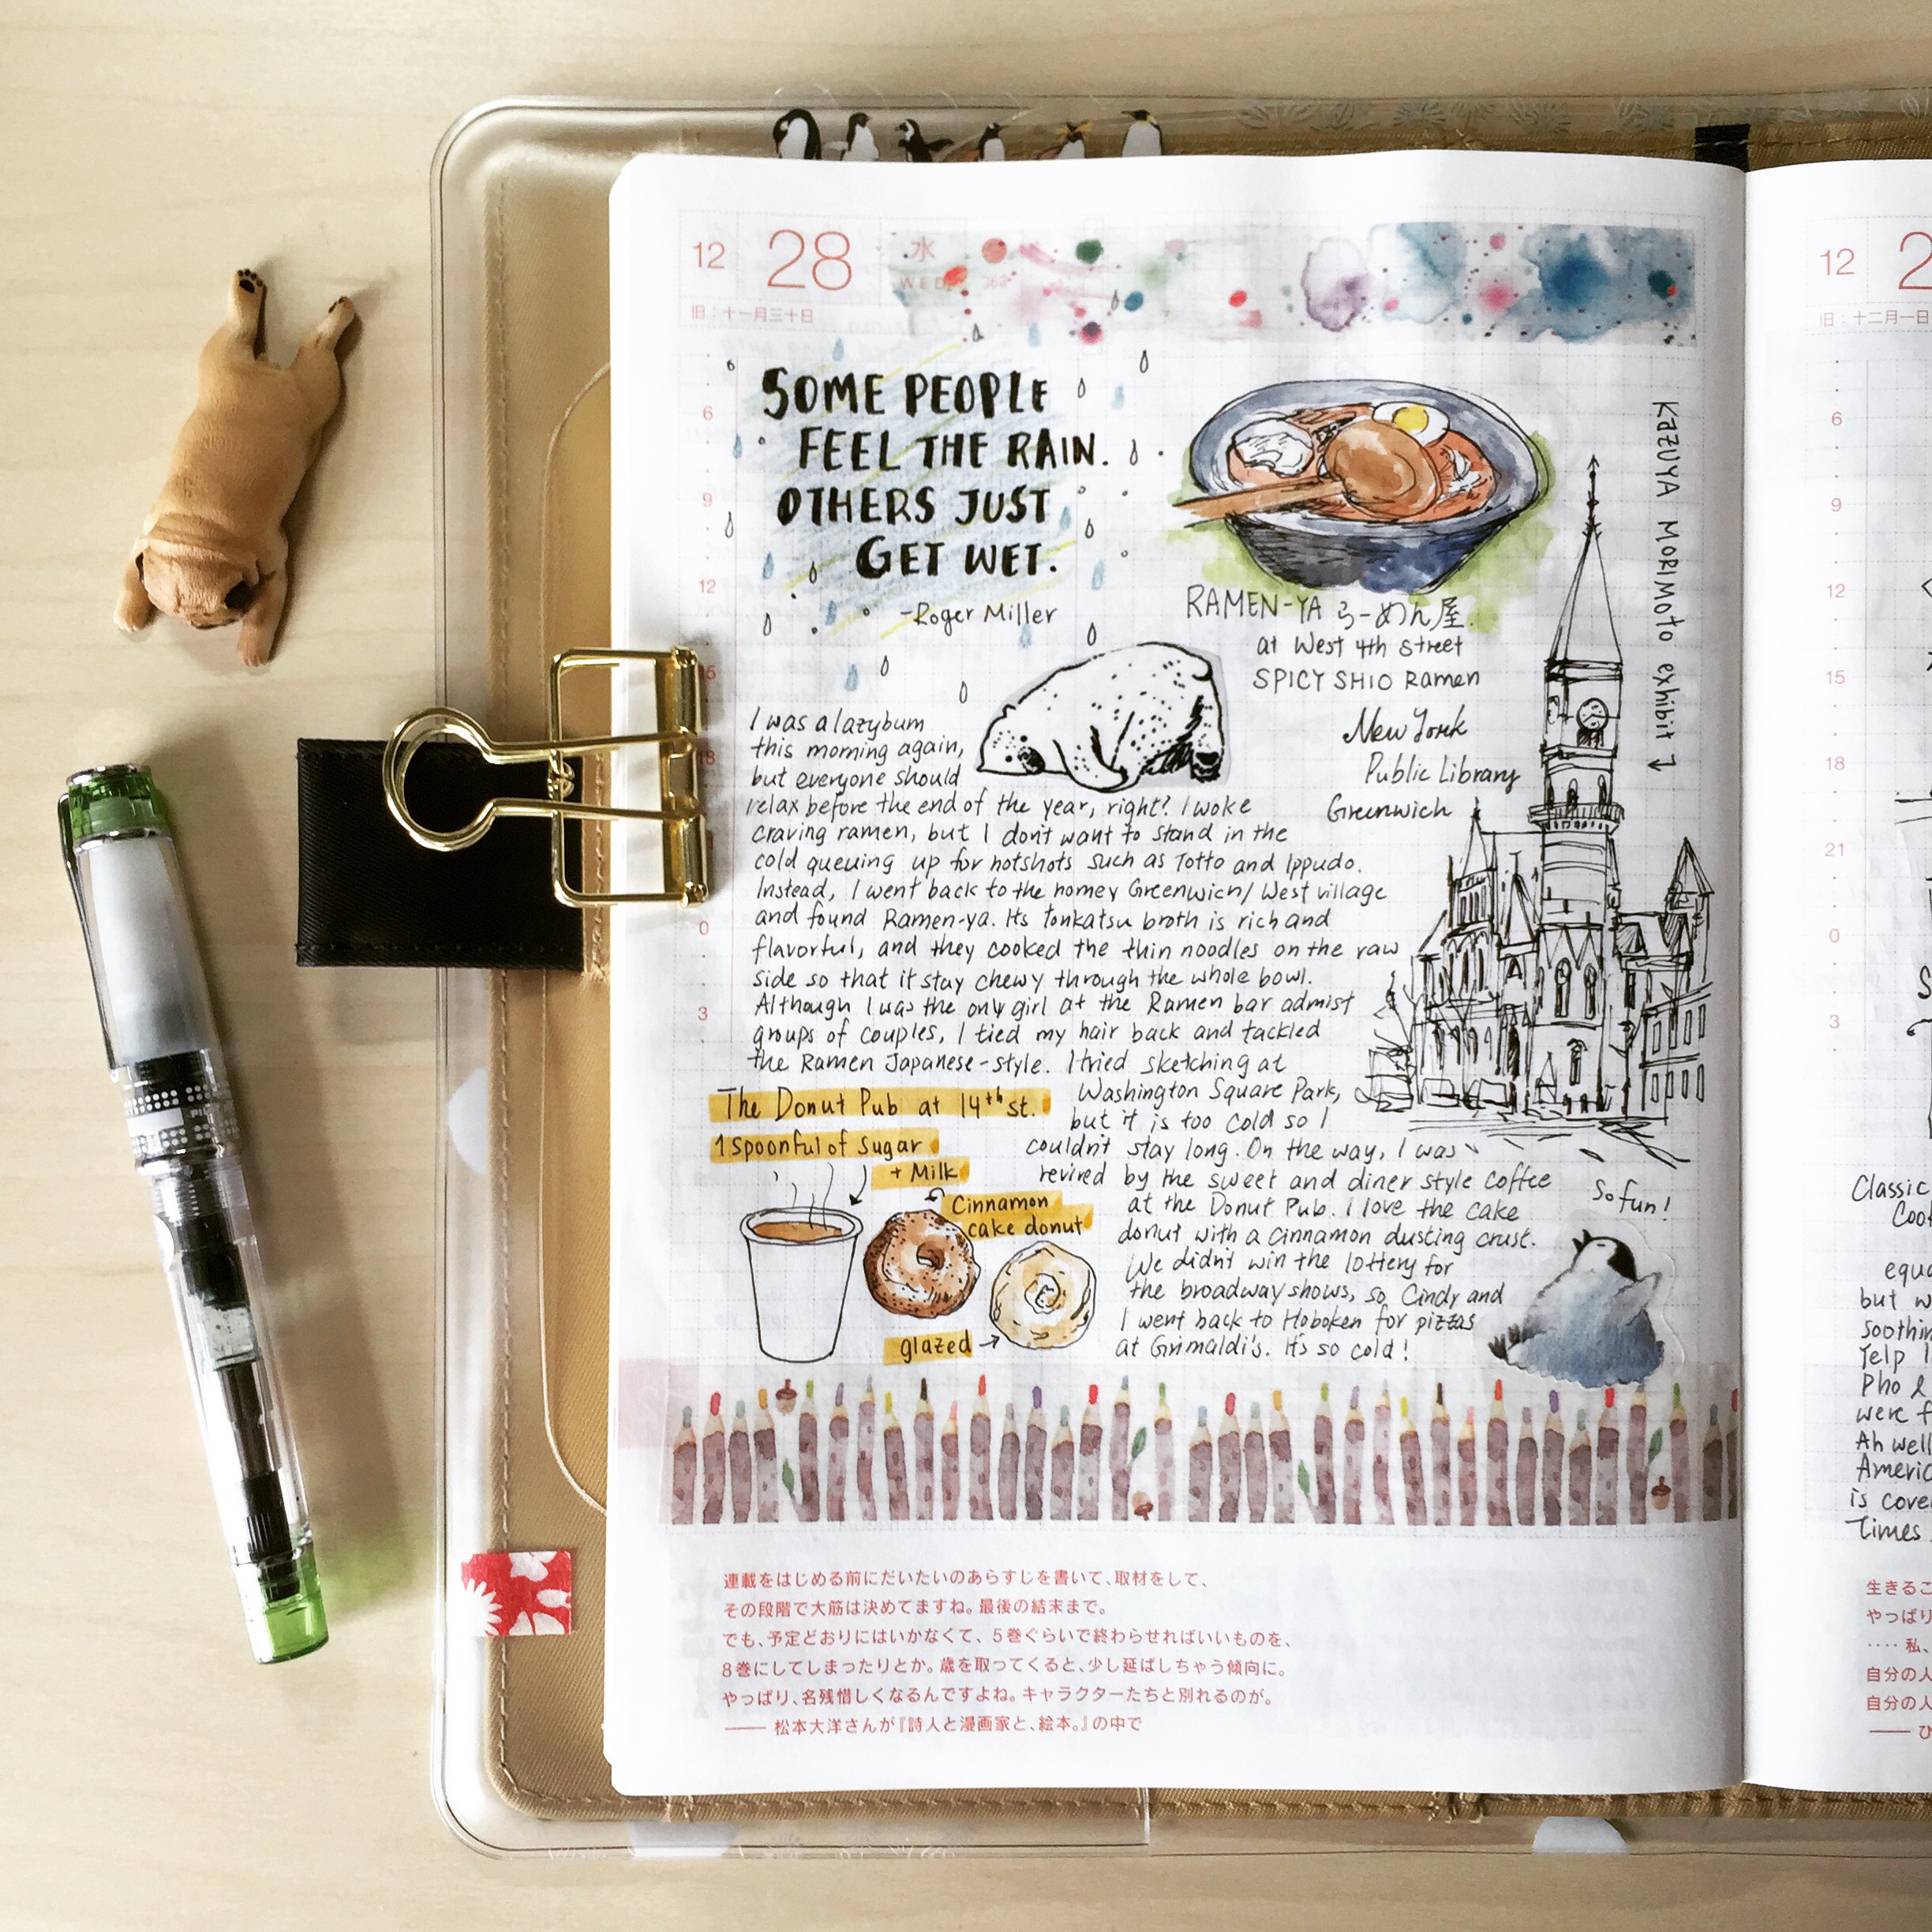 12 28 水
WED
旧：十一月三十日
SOME PEOPLE
FEEL THE RAIN.
OTHERS JUST
GET WET.
-Roger Miller
RAMEN-YA らーめん屋.
at West 4th Street
SPICY SHIO Ramen
KAZUYA MORIMOTO exhibit
New York
Public Library
Greenwich
I was a lazybum
this morning again,
but everyone should
relax before the end of the year, right? I woke
craving ramen, but I don't want to stand in the
cold queuing up for hotshots such as Totto and Ippudo.
Instead, I went back to the homey Greenwich/West village
and found Ramen-ya. Its Tonkatsu broth is rich and
flavorful, and they cooked the thin noodles on the raw
side so that it stay chewy through the whole bowl.
Although I was the only girl at the Ramen bar admist
groups of couples, I tied my hair back and tackled
the Ramen Japanese-style. I tried sketching at
Washington Square Park,
but it is too cold so I
couldn't stay long. On the way, I was
revived by the sweet and diner style coffee
at the Donut Pub. I love the cake
donut with a cinnamon dusting crust.
We didn't win the lottery for
the broadway shows, so Cindy and
I went back to Hoboken for pizzas
at Grimaldi's. It's so cold!
The Donut Pub at 14th st.
1 spoonful of sugar
+ Milk
Cinnamon
cake donut
glazed
So fun!
6
9
12
15
18
0
3
連載をはじめる前にだいたいのあらすじを書いて、取材をして、
その段階で大筋は決めてますね。最後の結末まで。
でも、予定どおりにはいかなくて、5巻ぐらいで終わらせればいいものを、
8巻にしてしまったりとか。歳を取ってくると、少し延ばしちゃう傾向に。
やっぱり、名残惜しくなるんですよね。キャラクターたちと別れるのが。
—— 松本大洋さんが『詩人と漫画家と、絵本。』の中で
12 2
旧：十二月一日
6
9
12
15
18
21
0
3
Classic
equa
but w
soothin
Yelp
Pho &
were f
Ah well
Americ
is cove
Times
生きるこ
やっぱり
‥‥私、
自分の人
自分の人
—— ひ